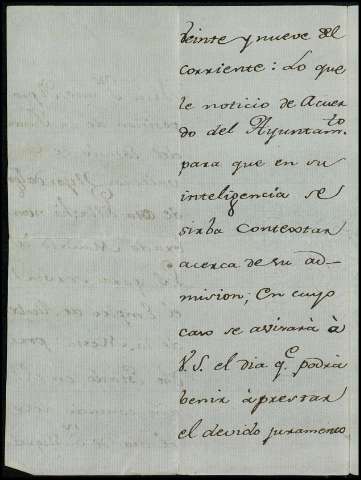 veinte y nueve del
corriente: Lo que
le noticio de Acuer-
do del Ayuntam.to
para que en su
inteligencia se
sirba Contextar
acerca de su ad-
mision; En cuyo
caso se avisará à
V.S. el dia q.e podrá
benir à prestar
el devido juramento